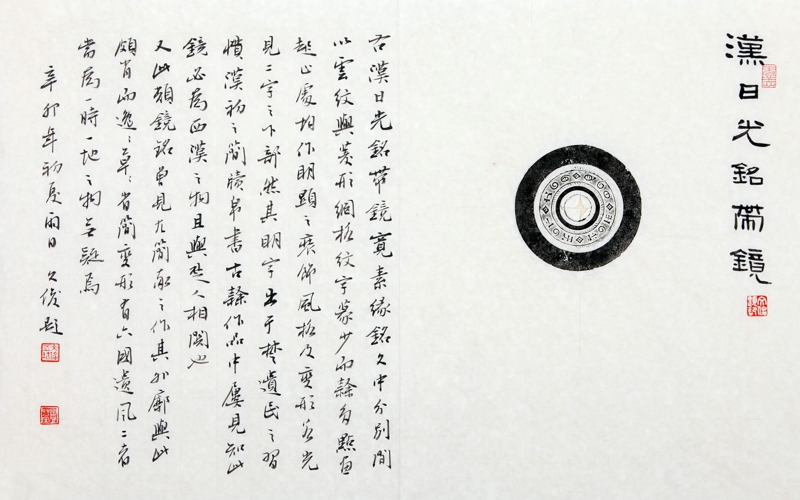 漢日光銘帶鏡
右漢日光銘帶鏡寬素緣銘文中分別間
以雲紋與菱形網格紋字篆少而隸多點畫
起止處均作明顯之裝飾風格及變形若光
見二字之下部然其明字出于楚遺民之習
慣漢初之簡牘帛書古隸作品中屢見知此
鏡必為西漢之物且與楚人相関也
又此類鏡銘曾見尤簡、之作其外廓與此
頗肖而逸、草、省簡變形有六國遺風二者
當為一時一地之物無疑焉
辛卯年初夏雨日 久俊題